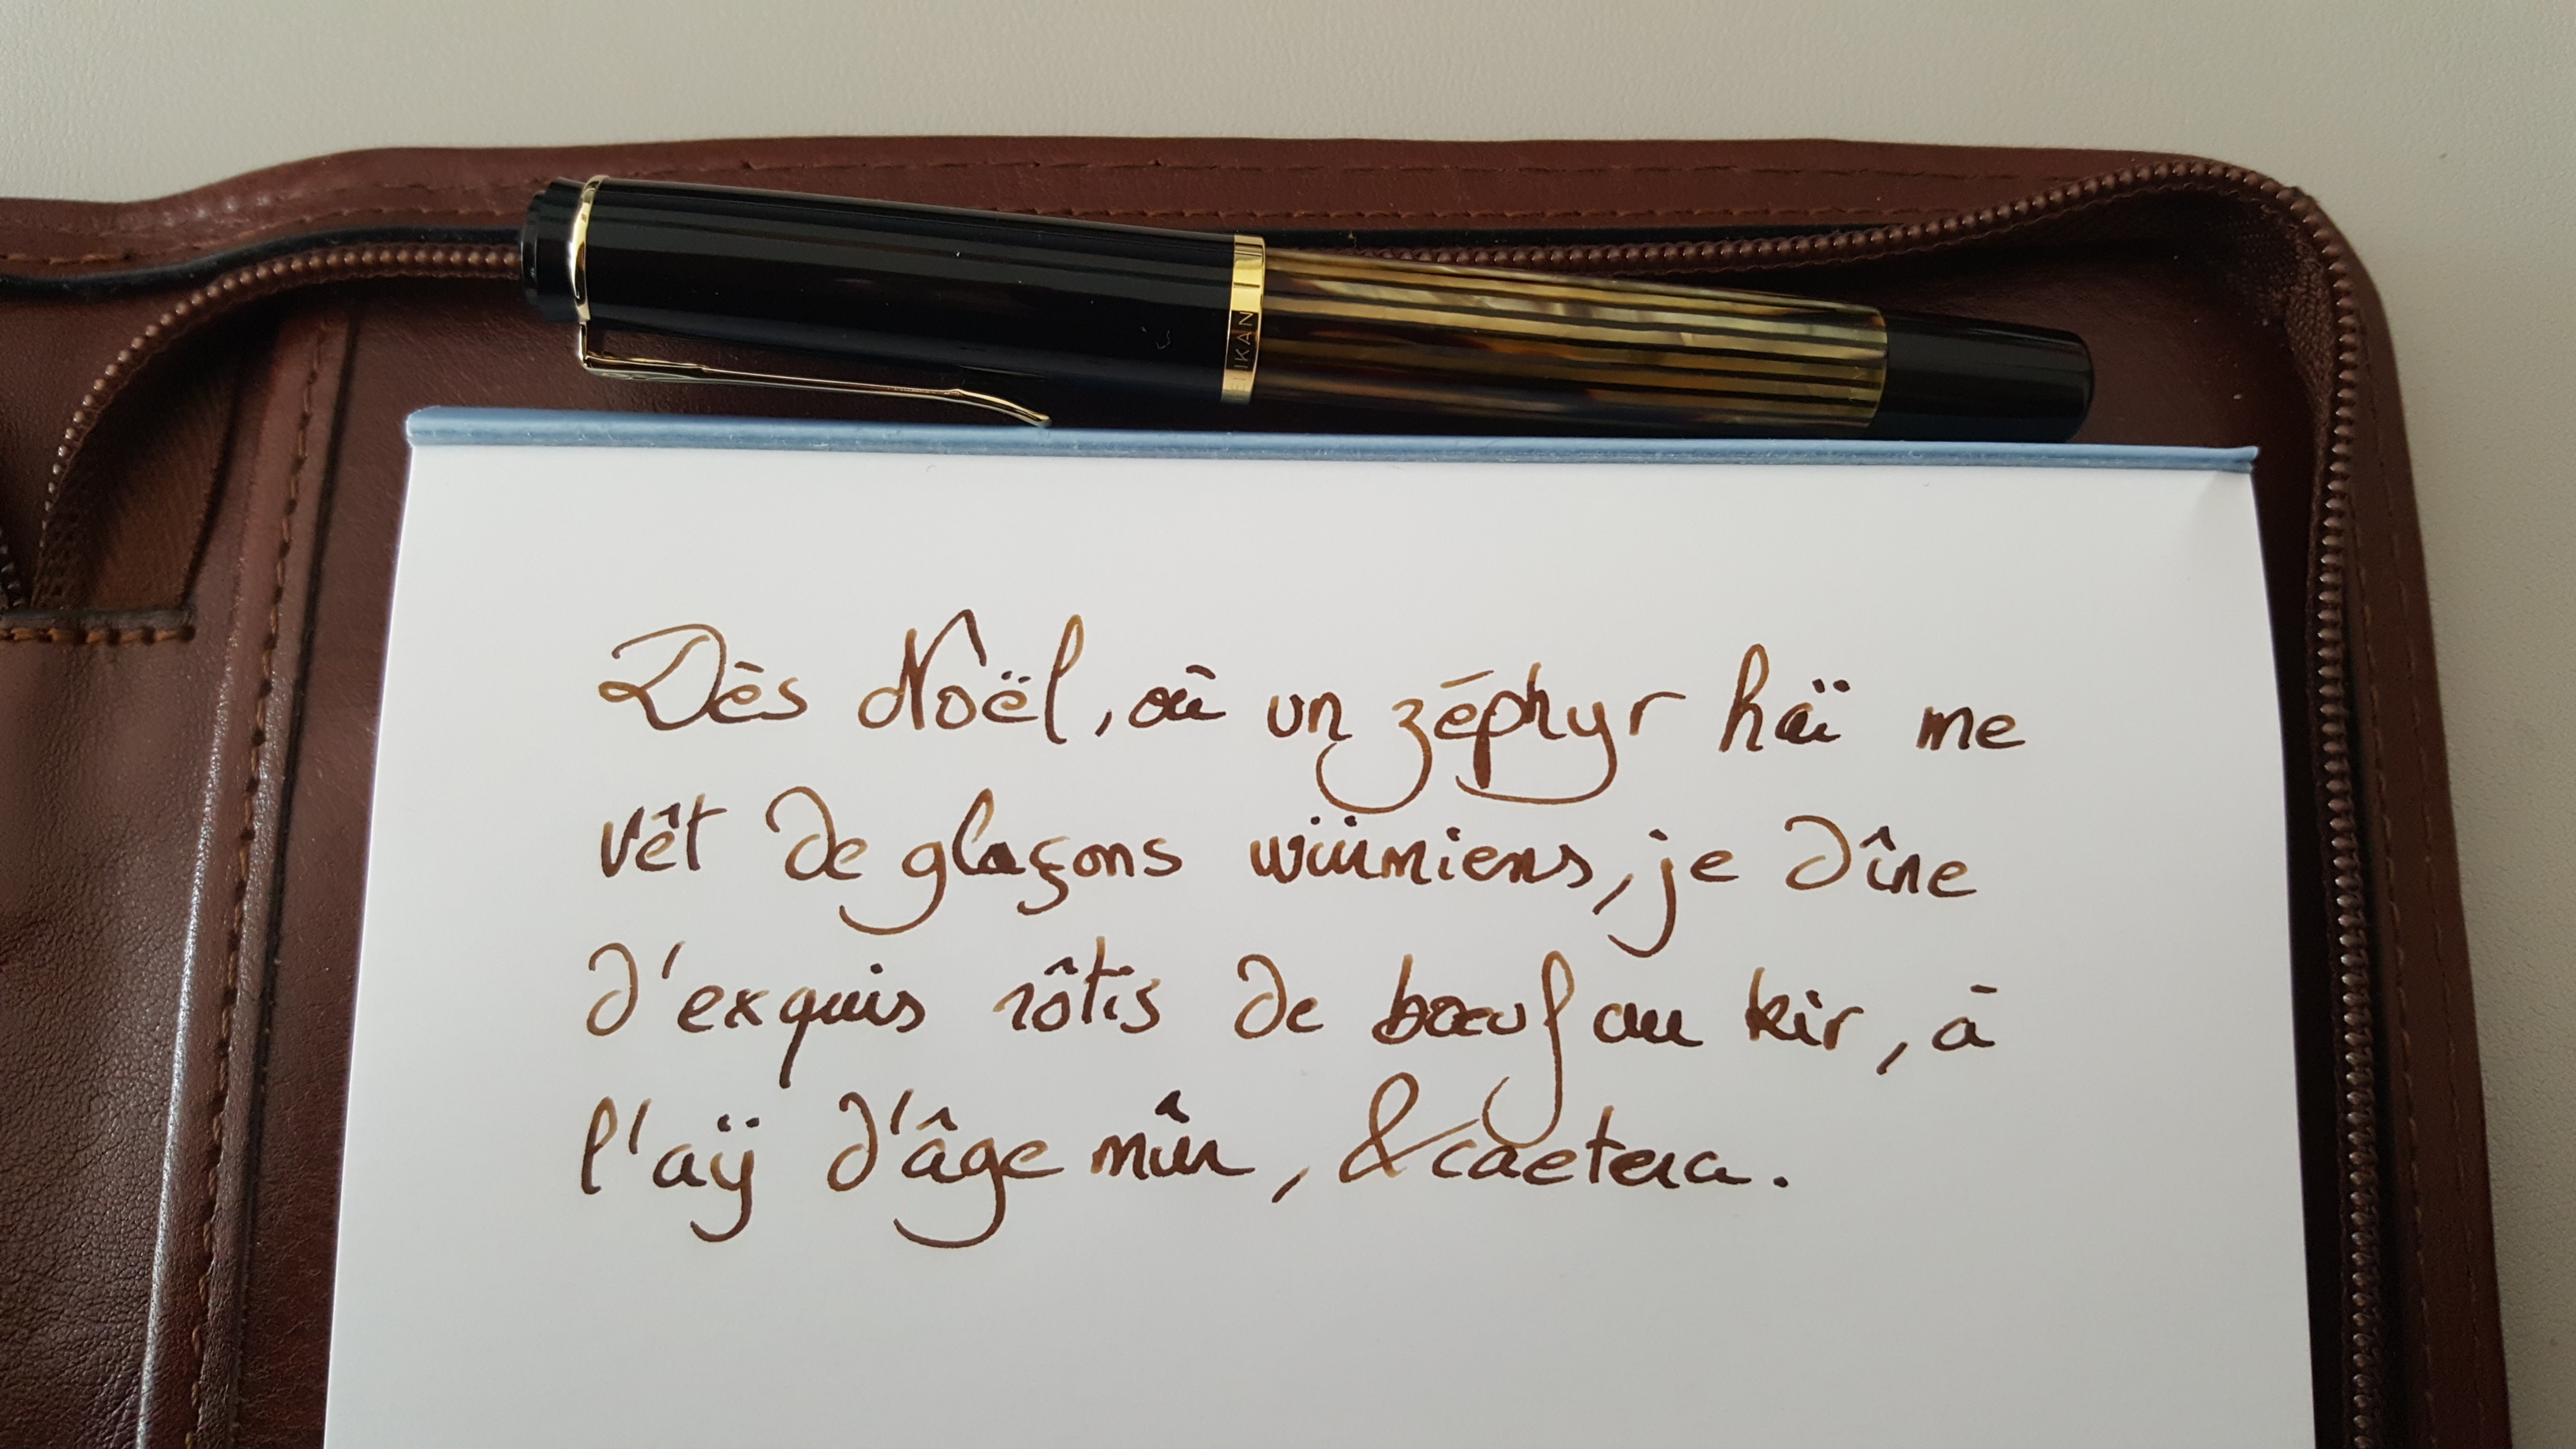 ELIKAN
Dès Noël, où un zéphyr haï me
vêt de glaçons würmiens, je dîne
d'exquis rôtis de bœuf au kir, à
l'aÿ d'âge mûr, &caetera.